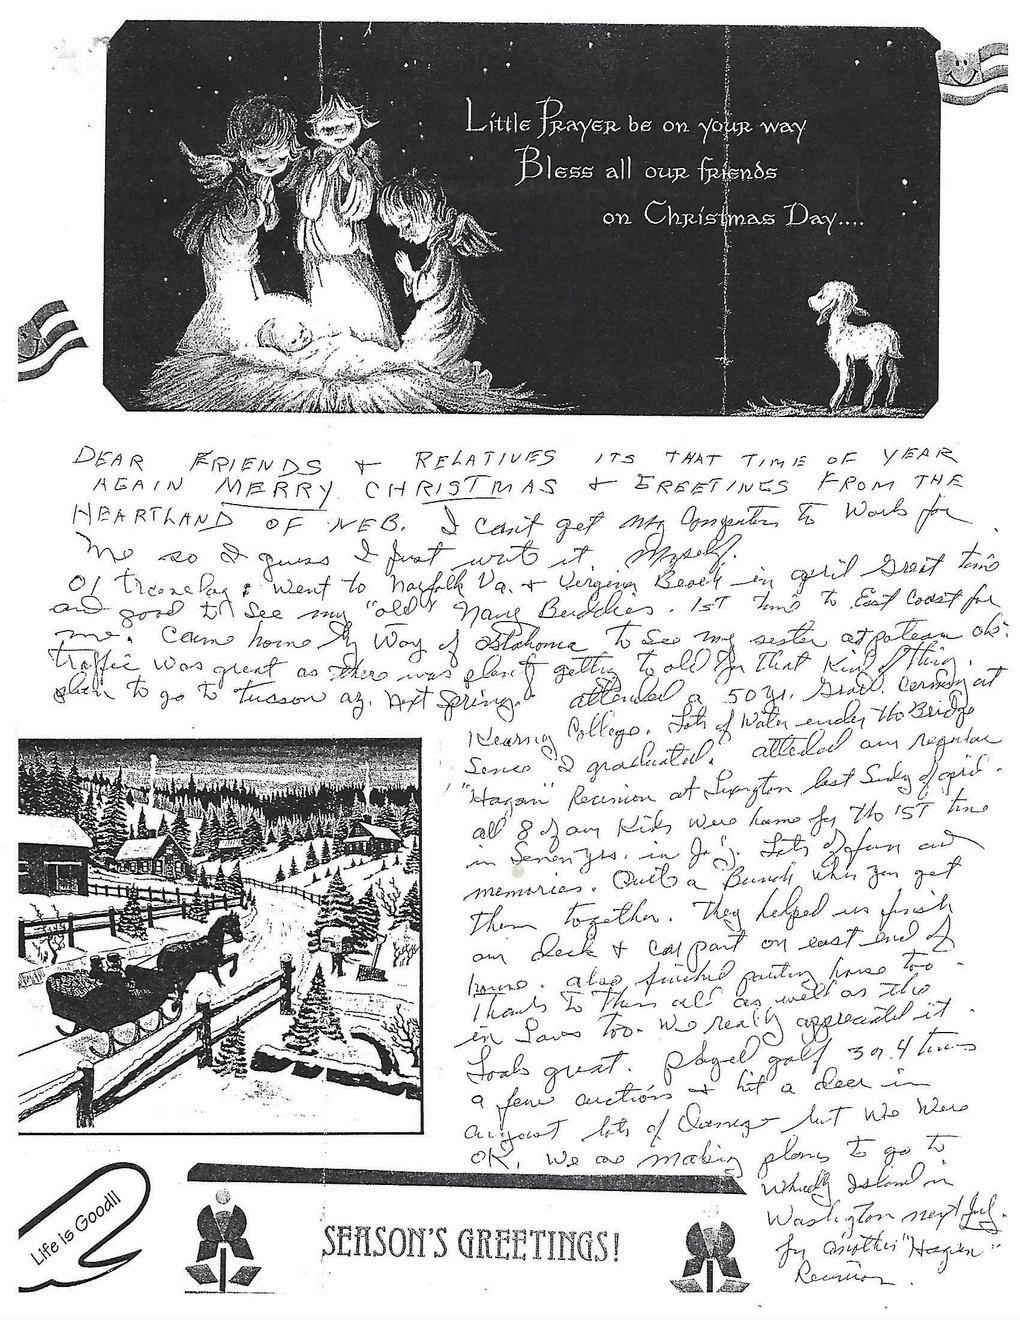 Little Prayer be on your way
Bless all our friends
on Christmas Day....
DEAR FRIENDS + RELATIVES ITS THAT TIME OF YEAR
AGAIN MERRY CHRISTMAS + GREETINGS FROM THE
HEARTLAND OF NEB. I can't get my Computer to Work for
me so I guess I just write it. Myself.
01 traveling: Went to Norfolk Va. + Virginia Beach in april Great time
and good to see my "old" Navy Buddies. 1ST time to East Coast for
me. Came home By Way of Oklahoma to see my sister at poteau ok.
traffic was great as there was plenty getting to old for That Kind of thing.
plan to go to tusson az. next Spring. attended a 50 yr. Grad. at
Kearney College. Lots of Water under the Bridge
Since I graduated. attended our regular
"Hagan" Reunion at Lexington last Sunday of april.
all 8 of our Kids were home for the 1ST time
in Seven yrs. in July. Lots of fun and
memories. Quite a Bunch when you get
them together. They helped us finish
our deck + car port on east end of
house. also finished painting house too.
Thanks to them all as well as the
in Laws too. We really appreciated it.
Looks great. played golf 3 or 4 times
a few auctions + hit a deer in
august lots of Damage but We Were
OK. We are making plans to go to
Whidby Island in
Washington next July.
for another "Hagan"
Reunion.
Life is Good!!
SEASON'S GREETINGS!